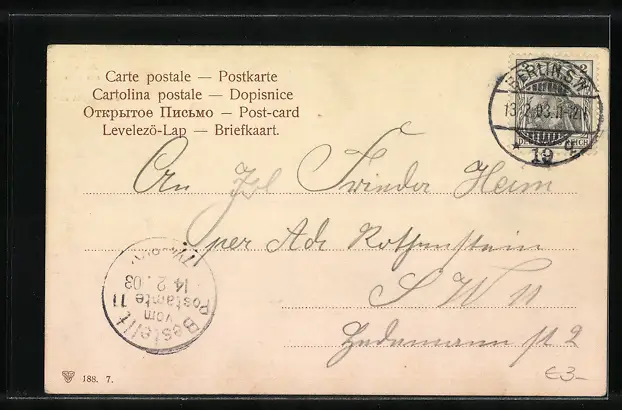 Carte postale — Postkarte
Cartolina postale — Dopisnice
Открытое Письмо — Post-card
Levelező-Lap — Briefkaart.
BERLIN S.W.
13.2.03.11-12V
* 19
2
REICH
An Heim
per Adr Rothenstein
S W 11
Hedemann st 2
Bestellt
vom
Postamte 11
14.2.03
188. 7.
€3-